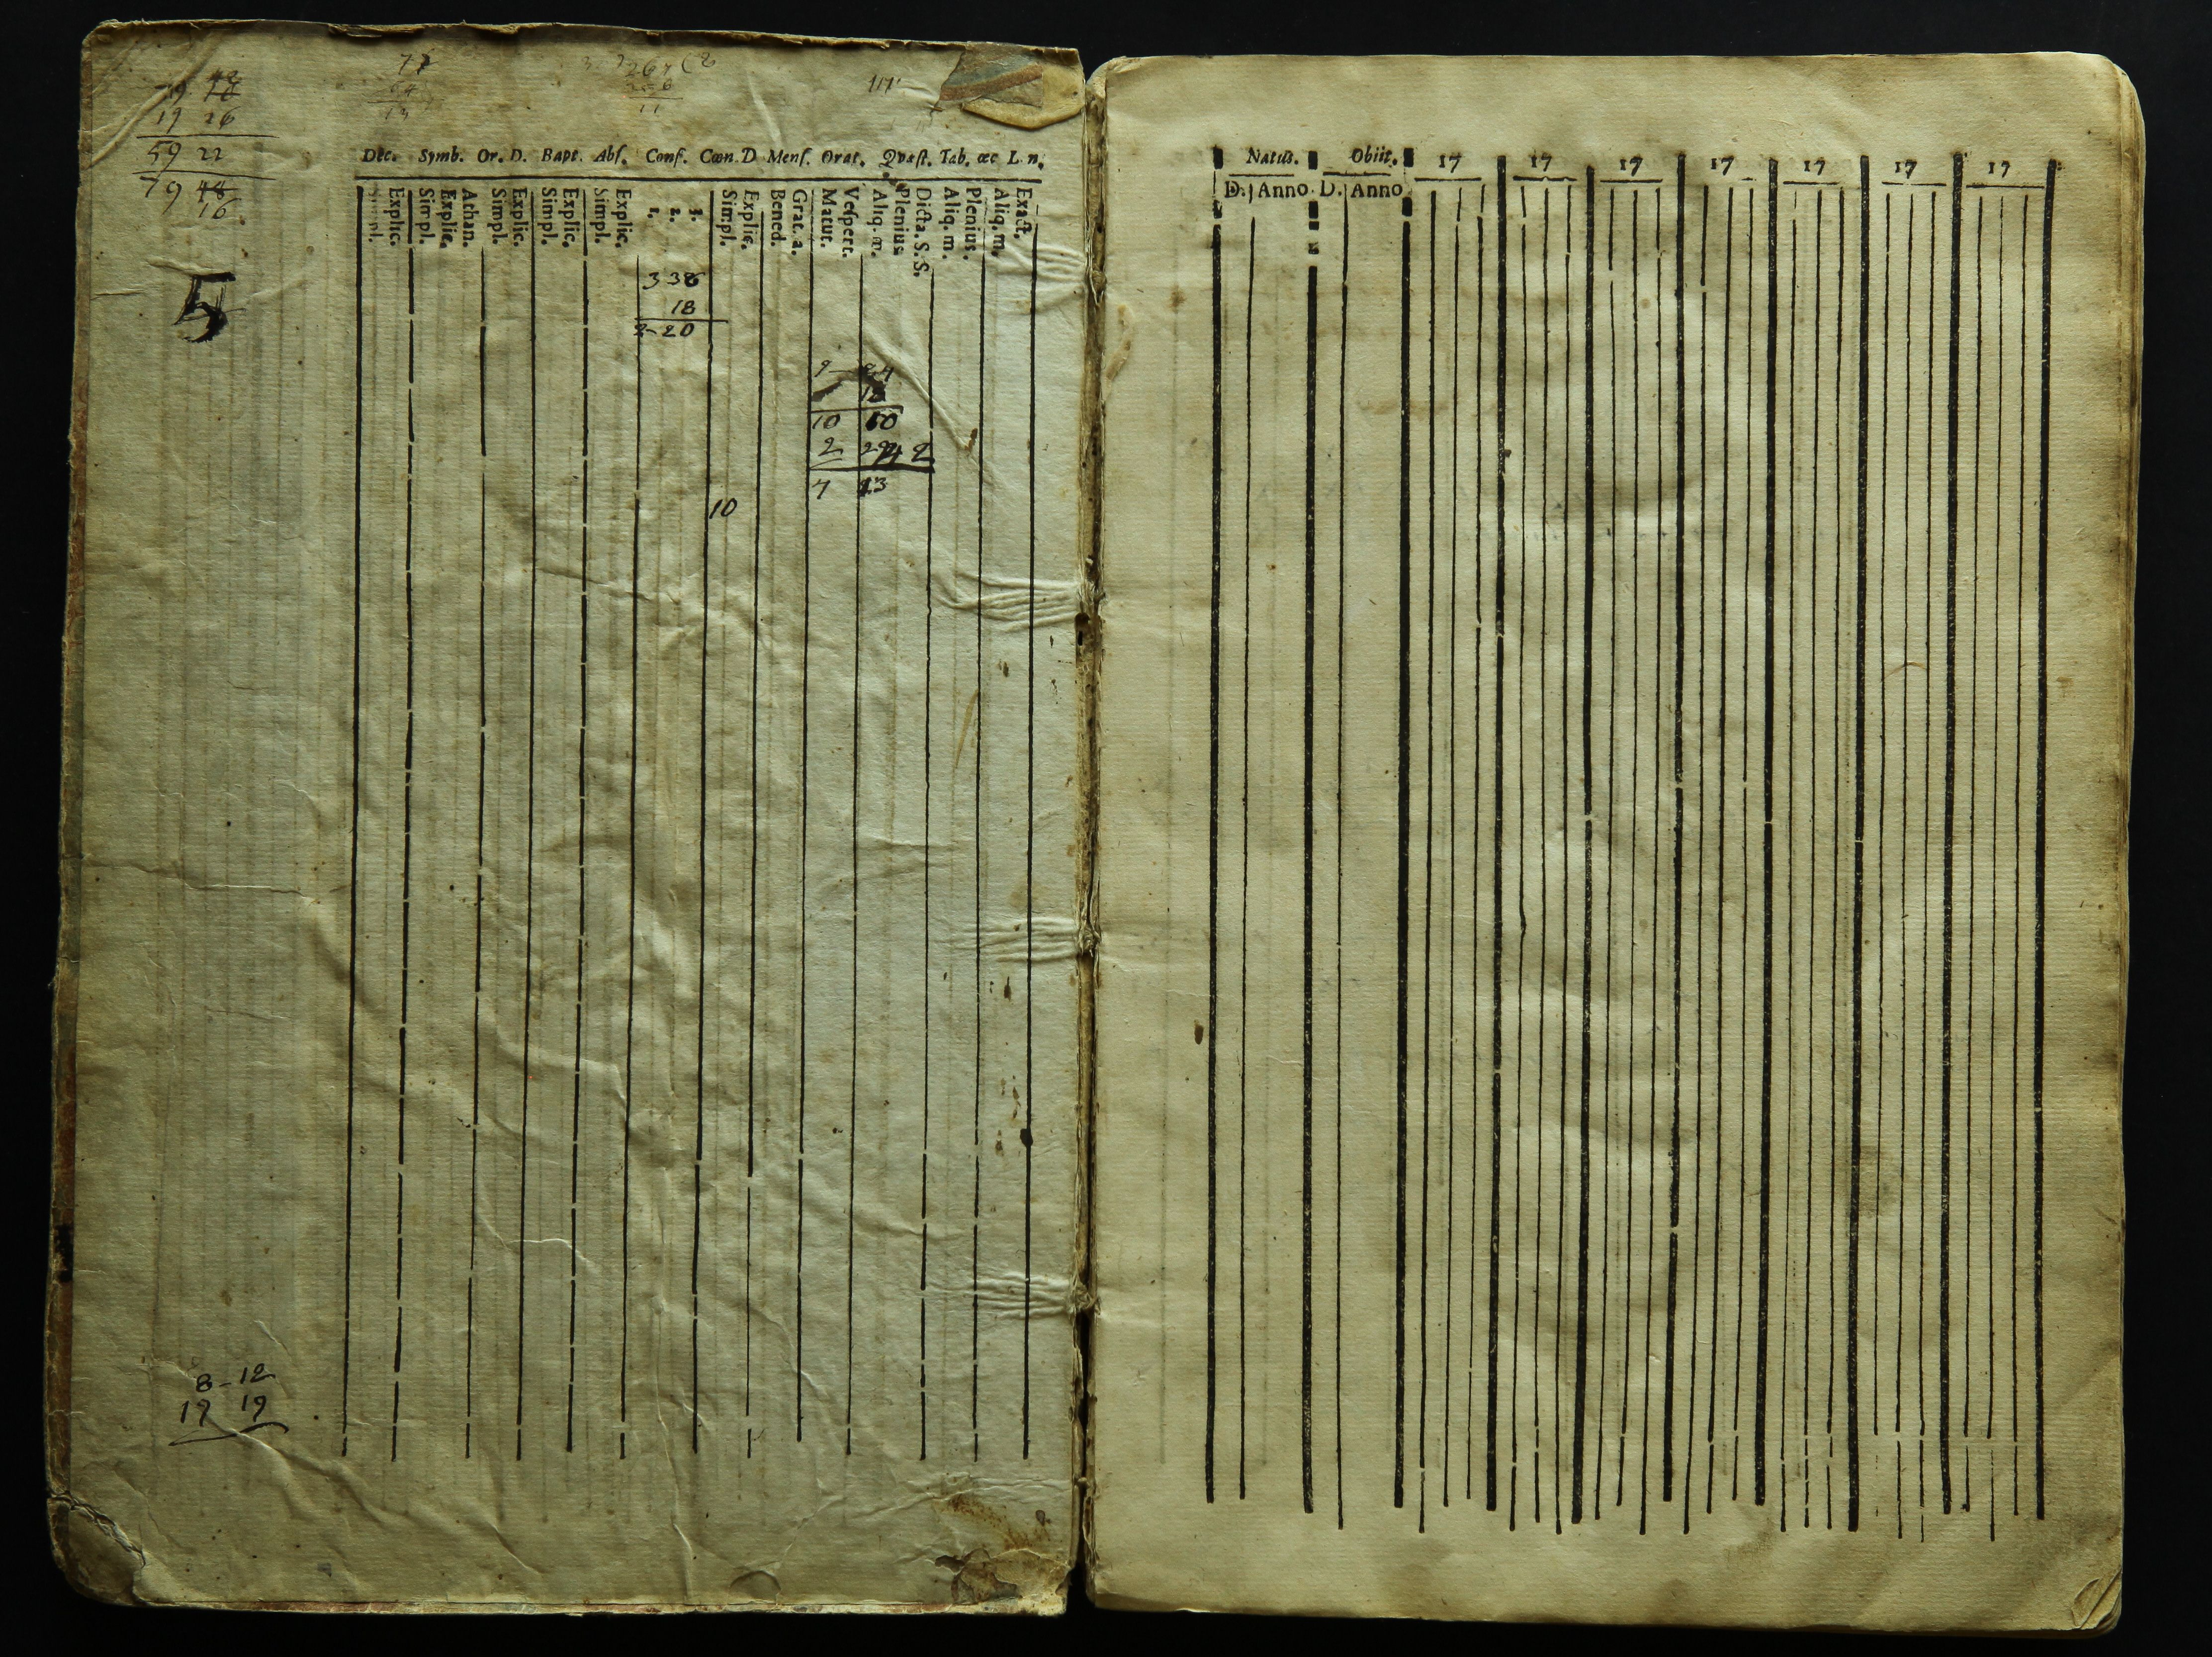 48
19 18
19 26
59 22
79 44
16
5
77
64
13
267 (8
256
11
117
Dec. Symb. Or. D. Bapt. Abſ. Conf. Cœn. D Menſ. Orat. Qvæſt. Tab. œc L. n.
Simpl.
Explic.
Simpl.
Explic.
Athan.
Simpl.
Explic.
Simpl.
Explic.
Simpl.
Explic.
1.
2.
3.
Simpl.
Explic.
Bened.
Grat. a.
Matut.
Veſpert.
Aliq. m.
Plenius
Dicta. S. S.
Aliq. m.
Plenius.
Aliq. m.
Exact.
3 36
18
2-20
10 10
7 13
10
8-12
19 19
Natus. Obiit. 17 17 17 17 17 17 17
D. Anno D. Anno